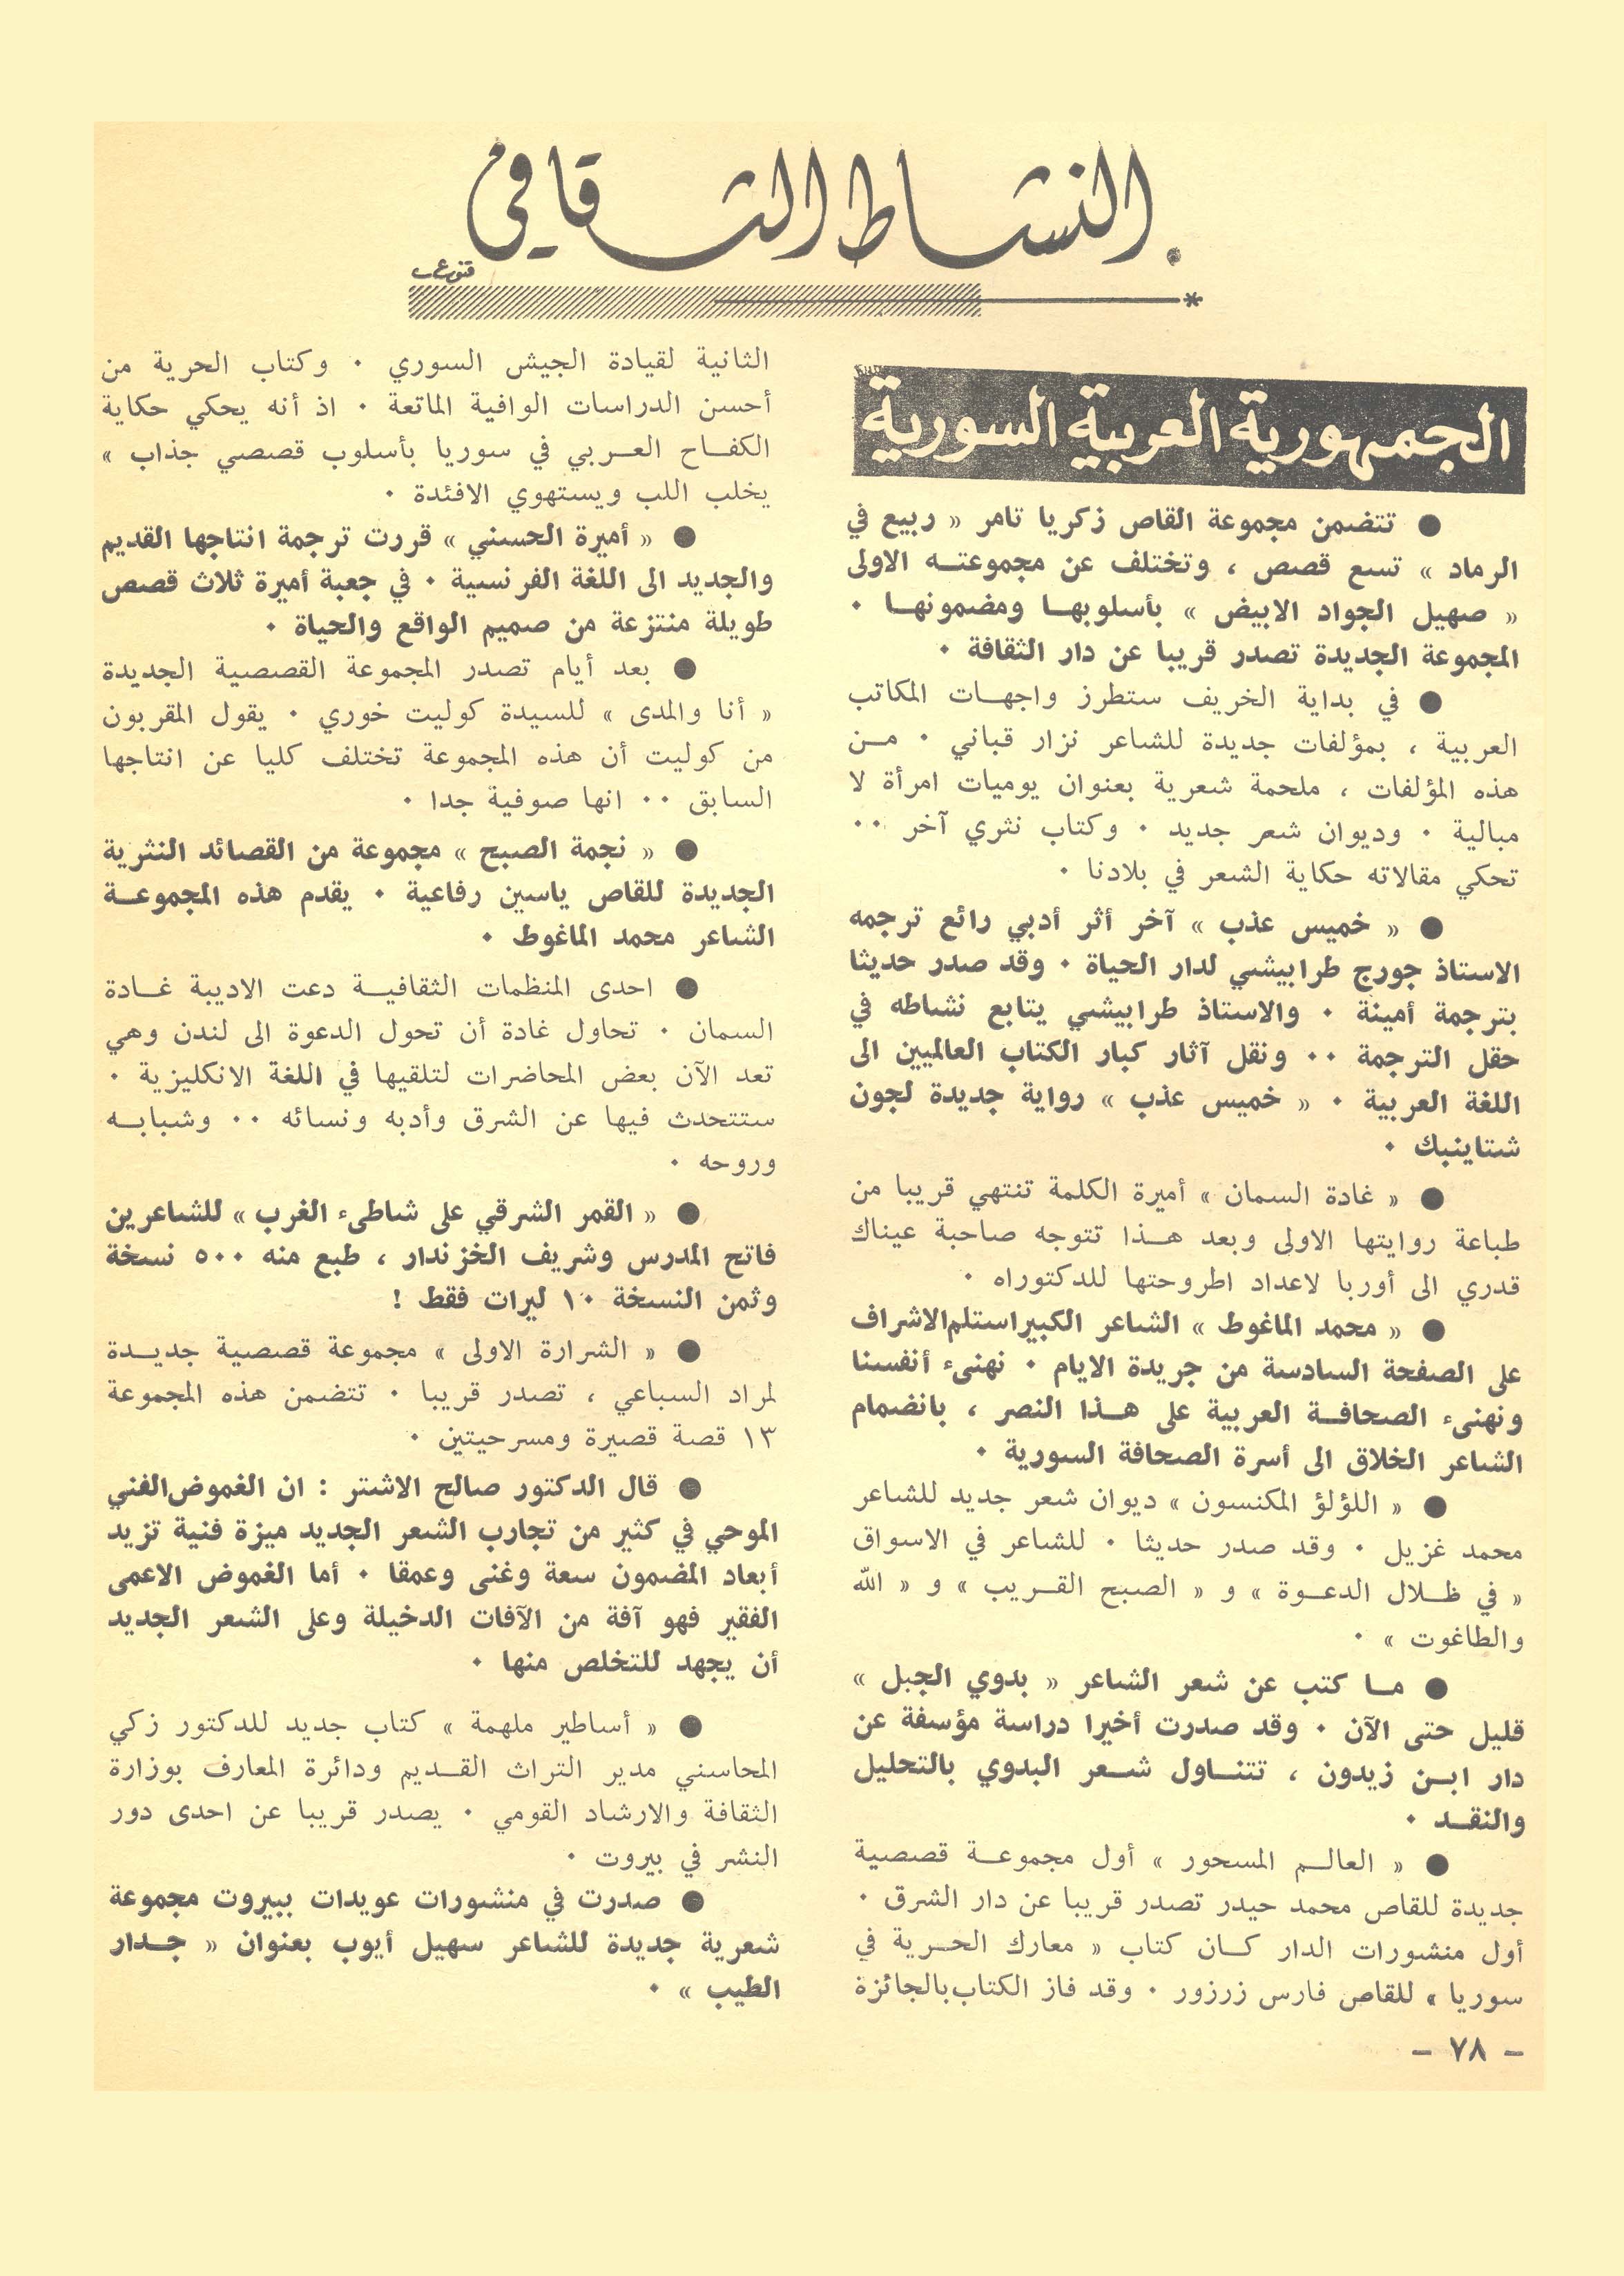 النشاط الثقافي
الجمهورية العربية السورية
● تتضمن مجموعة القاص زكريا تامر « ربيع في
الرماد » تسع قصص ، وتختلف عن مجموعتـه الاولى
« صهيل الجواد الابيض » بأسلوبهـا ومضمونهـا ٠
المجموعة الجديدة تصدر قريبا عن دار الثقافة ٠
● في بداية الخريف ستطرز واجهـات المكاتب
العربية ، بمؤلفات جديدة للشاعر نزار قباني ٠ مـن
هذه المؤلفات ، ملحمة شعرية بعنوان يوميات امرأة لا
مبالية ٠ وديوان شعر جديد ٠ وكتاب نثري آخر ٠٠
تحكي مقالاته حكاية الشعر في بلادنا ٠
● « خميس عذب » آخر أثر أدبي رائع ترجمه
الاستاذ جورج طرابيشي لدار الحياة ٠ وقد صدر حديثا
بترجمة أمينة ٠ والاستاذ طرابيشي يتابع نشاطه في
حقل الترجمة ٠٠ ونقل آثار كبار الكتاب العالميين الى
اللغة العربية ٠ « خميس عذب » رواية جديدة لجون
شتاينبك ٠
● « غادة السمان » أميرة الكلمة تنتهي قريبا من
طباعة روايتها الاولى وبعد هـذا تتوجه صاحبة عيناك
قدري الى أوربا لاعداد اطروحتها للدكتوراه ٠
● « محمد الماغوط » الشاعر الكبير استلم الاشراف
على الصفحة السادسة من جريدة الايام ٠ نهنىء أنفسنا
ونهنىء الصحافـة العربية على هـذا النصر ، بانضمام
الشاعر الخلاق الى أسرة الصحافة السورية ٠
● « اللؤلؤ المكنسون » ديوان شعر جديد للشاعر
محمد غزيل ٠ وقد صدر حديثا ٠ للشاعر في الاسواق
« في ظـلال الدعـوة » و « الصبح القـريب » و « الله
والطاغوت » ٠
● مـا كتب عن شعر الشاعر « بدوي الجبل »
قليل حتى الآن ٠ وقد صدرت أخيرا دراسة مؤسفة عن
دار ابـن زيدون ، تتنـاول شـعر البدوي بالتحليل
والنقـد ٠
● « العالـم المسحور » أول مجموعـة قصصية
جديدة للقاص محمد حيدر تصدر قريبا عن دار الشرق ٠
أول منشورات الدار كـان كتاب « معارك الحـرية في
سوريا » للقاص فارس زرزور ٠ وقد فاز الكتاب بالجائزة
الثانية لقيادة الجيش السوري ٠ وكتاب الحرية من
أحسن الدراسات الوافية الماتعة ٠ اذ أنه يحكي حكاية
الكفـاح العـربي في سوريا بأسلوب قصصي جذاب »
يخلب اللب ويستهوي الافئدة ٠
● « أميرة الحسني » قررت ترجمة انتاجها القديم
والجديد الى اللغة الفرنسية ٠ في جعبة أميرة ثلاث قصص
طويلة منتزعة من صميم الواقع والحياة ٠
● بعد أيام تصدر المجموعة القصصية الجديدة
« أنا والمدى » للسيدة كوليت خوري ٠ يقول المقربون
من كوليت أن هذه المجموعة تختلف كليا عن انتاجها
السابق ٠٠ انها صوفية جدا ٠
● « نجمة الصبح » مجموعة من القصائد النثرية
الجديدة للقاص ياسين رفاعية ٠ يقدم هذه المجموعـة
الشاعر محمد الماغوط ٠
● احدى المنظمات الثقافيـة دعت الاديبة غـادة
السمان ٠ تحاول غادة أن تحول الدعوة الى لندن وهي
تعد الآن بعض المحاضرات لتلقيها في اللغة الانكليزية ٠
ستتحدث فيها عن الشرق وأدبه ونسائه ٠٠ وشبابـه
وروحه ٠
● « القمر الشرقي على شاطىء الغرب » للشاعرين
فاتح المدرس وشريف الخزندار ، طبع منه ٥٠٠ نسخة
وثمن النسخة ١٠ ليرات فقط !
● « الشرارة الاولى » مجموعة قصصية جديـدة
لمراد السباعي ، تصدر قريبا ٠ تتضمن هذه المجموعة
١٣ قصة قصيرة ومسرحيتين ٠
● قال الدكتور صالح الاشتر : ان الغموض الفني
الموحي في كثير من تجارب الشعر الجديد ميزة فنية تزيد
أبعاد المضمون سعة وغنى وعمقا ٠ أما الغموض الاعمى
الفقير فهو آفة من الآفات الدخيلة وعلى الشعر الجديد
أن يجهد للتخلص منها ٠
● « أساطير ملهمة » كتاب جديد للدكتور زكي
المحاسني مدير التراث القـديم ودائرة المعارف بوزارة
الثقافة والارشاد القومي ٠ يصدر قريبا عن احدى دور
النشر في بيروت ٠
● صدرت في منشورات عويدات ببيروت مجموعة
شعرية جديدة للشاعر سهيل أيوب بعنوان « جـدار
الطيب » ٠
– ٧٨ –